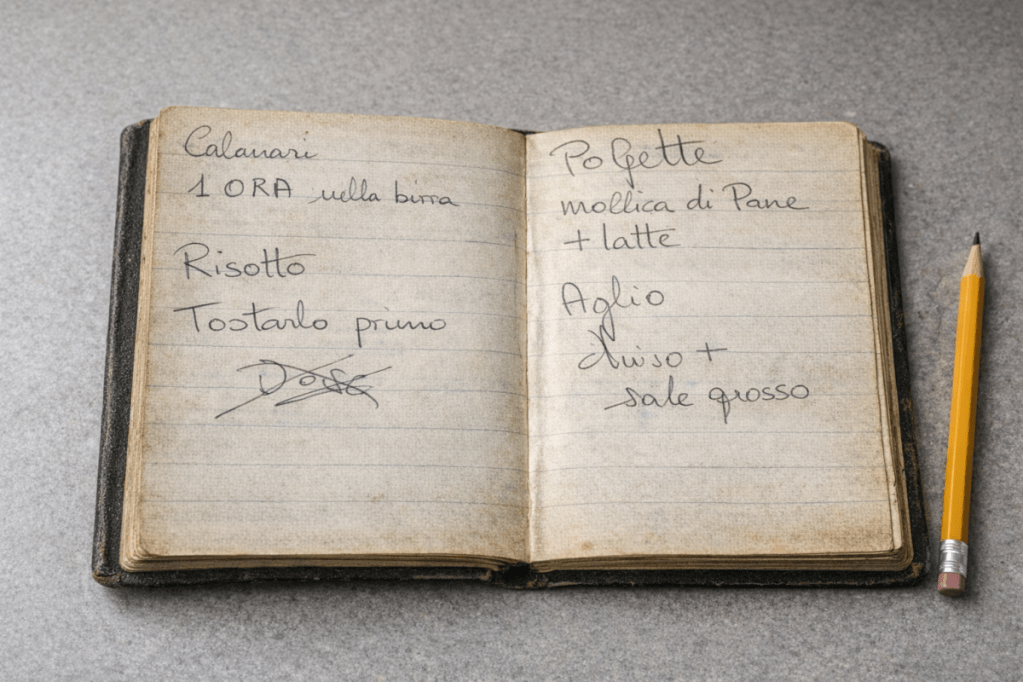 Calamari
1 ORA nella birra
Risotto
Tostarlo primo
Polpette
mollica di Pane
+ latte
Aglio
diviso +
sale grosso